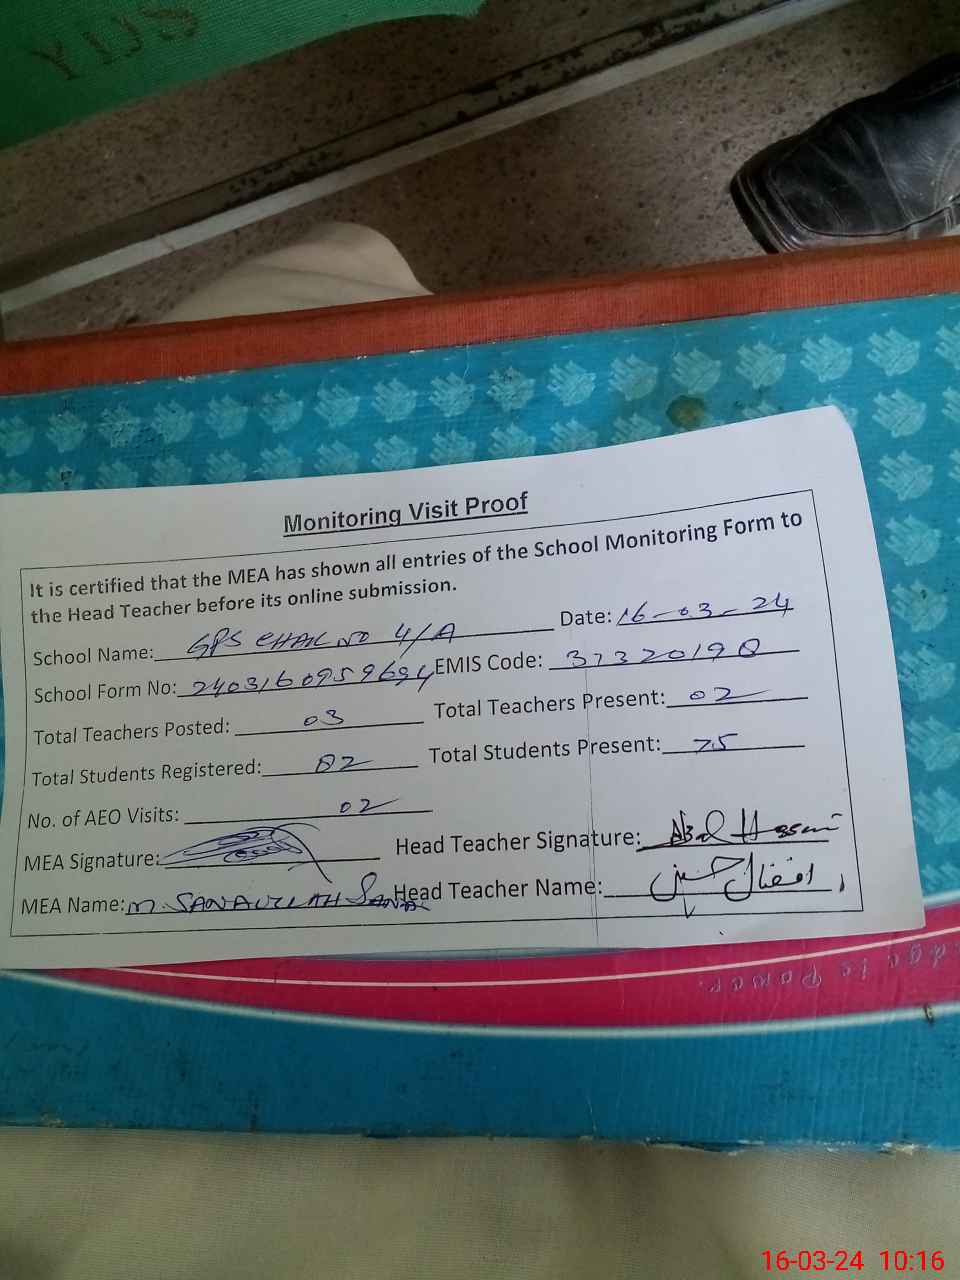 YIJS
Monitoring Visit Proof
It is certified that the MEA has shown all entries of the School Monitoring Form to
the Head Teacher before its online submission.
School Name: GPS CHAK NO 4/A Date: 16-03-24
School Form No: 2403160959694 EMIS Code: 37320198
Total Teachers Posted: 03 Total Teachers Present: 02
Total Students Registered: 82 Total Students Present: 75
No. of AEO Visits: 02
MEA Signature: Head Teacher Signature:
MEA Name: M. SANAULLAH Head Teacher Name: افضال حسین
is Power.
16-03-24 10:16